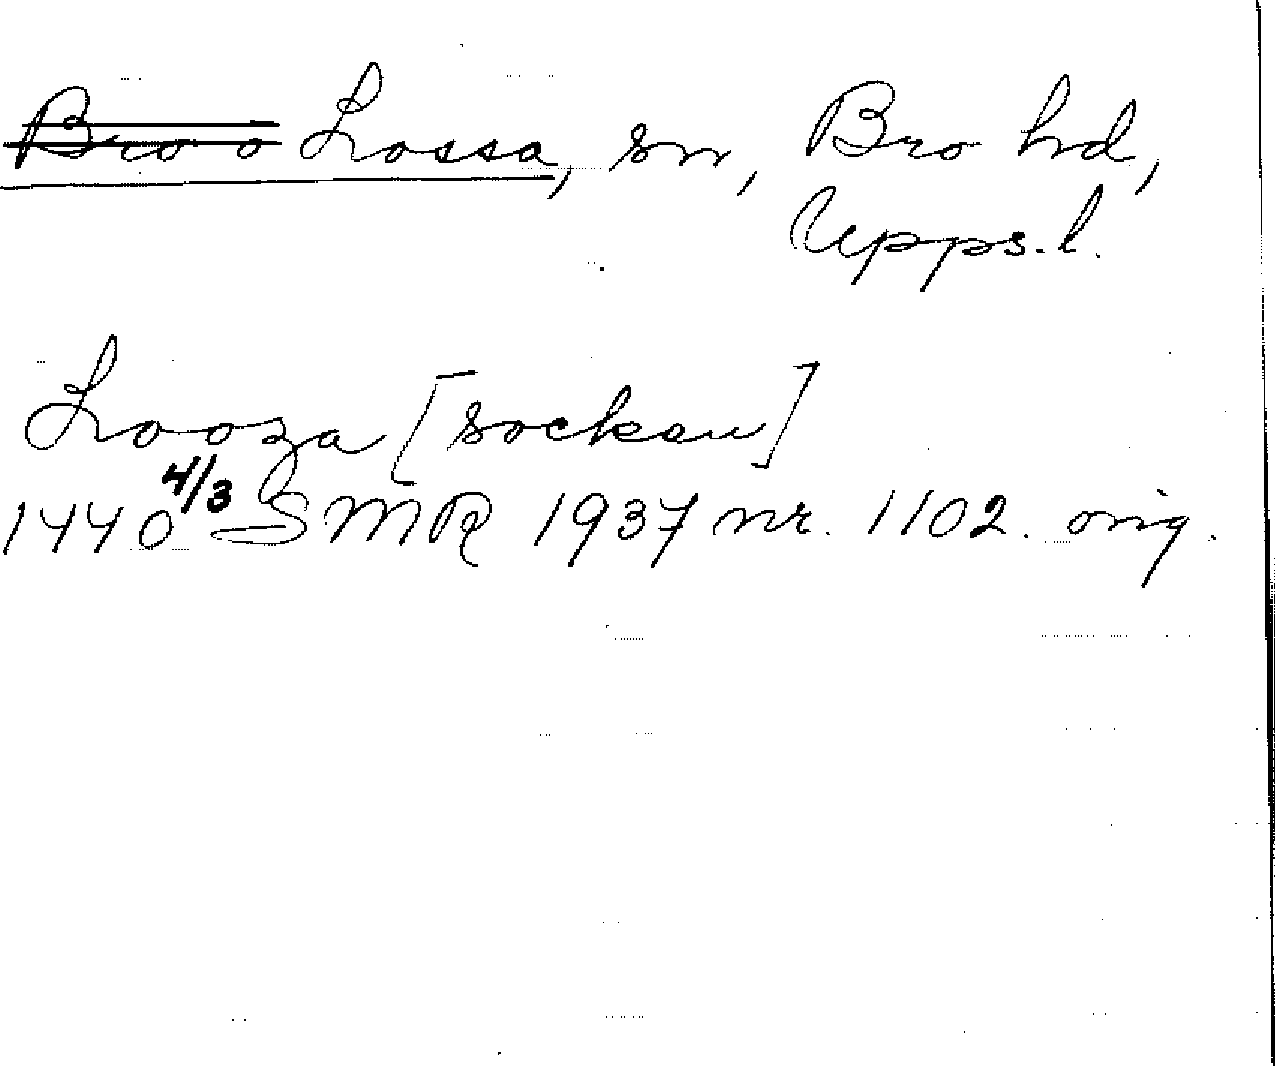 Bro o Lossa, sn, Bro hd,
Upps. l.
Looza [sockau]
1440 4/3 SMR 1937 nr. 1102. orig.